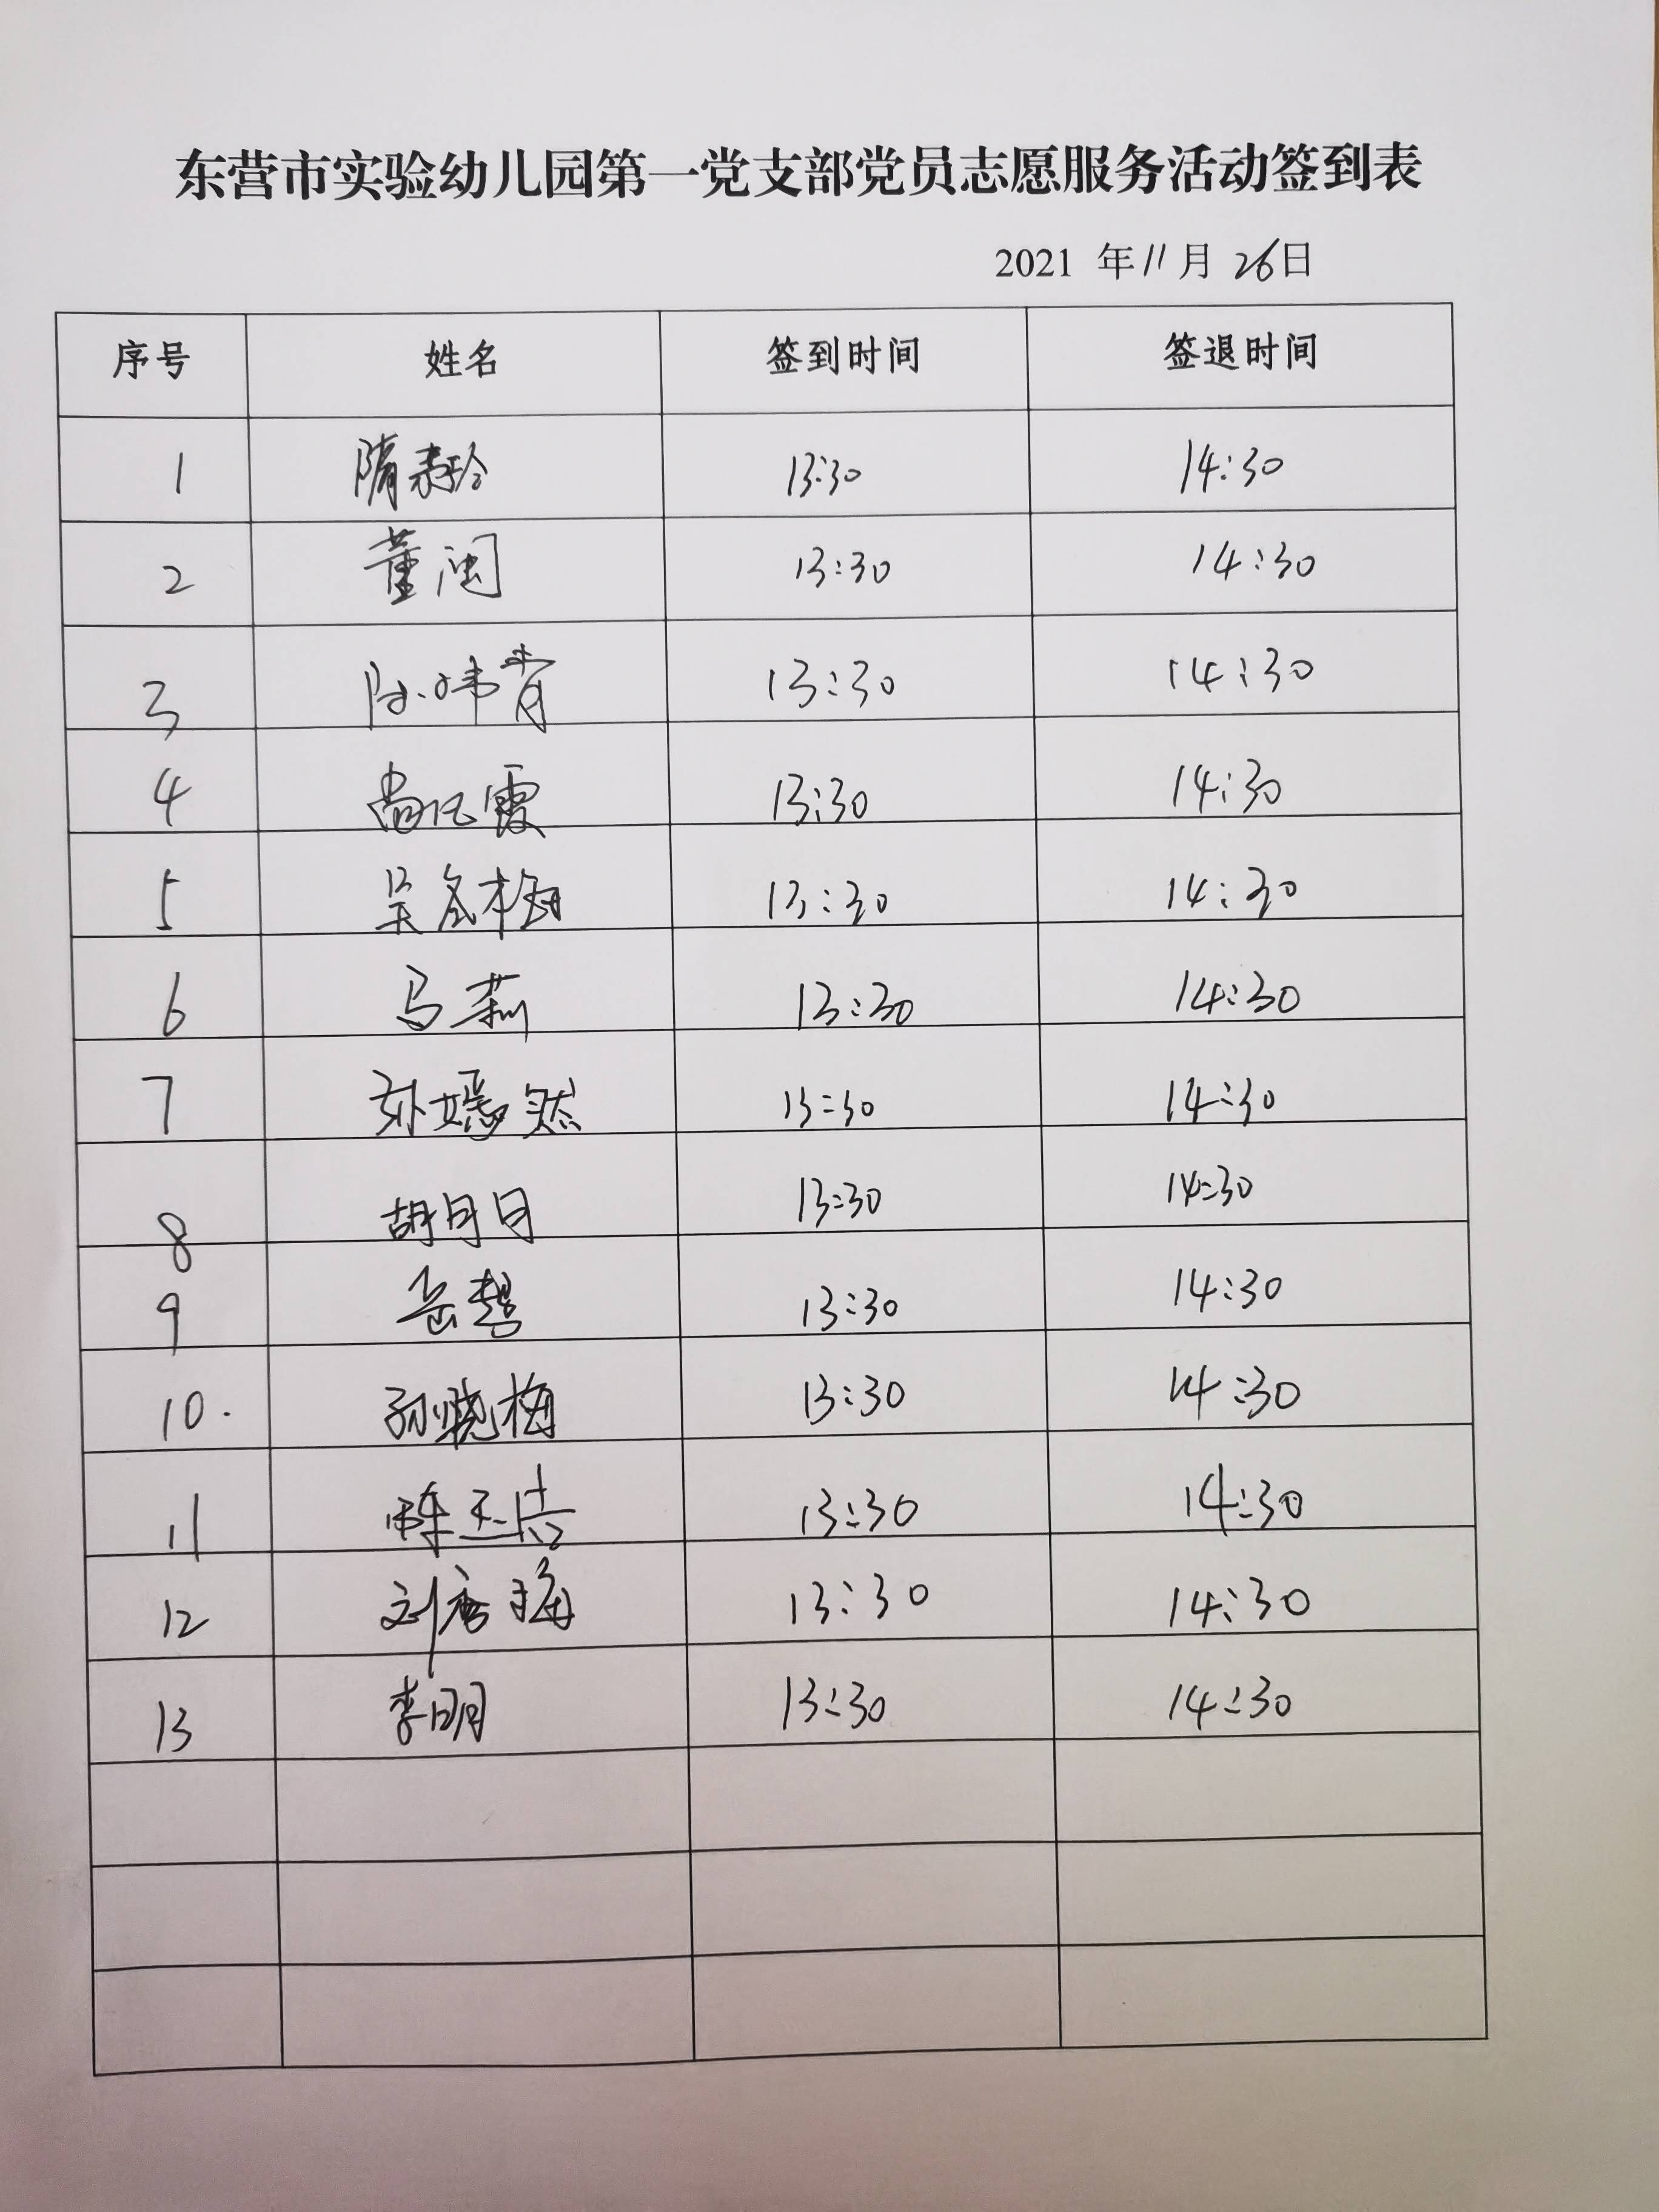 东营市实验幼儿园第一党支部党员志愿服务活动签到表
2021 年 11 月 26 日
序号 姓名 签到时间 签退时间
1 隋素玲 13:30 14:30
2 董闰 13:30 14:30
3 13:30 14:30
4 尚化霞 13:30 14:30
5 吴冬梅 13:30 14:30
6 马莉 13:30 14:30
7 孙嫣然 13:30 14:30
8 胡月日 13:30 14:30
9 岳慧 13:30 14:30
10. 孙晓梅 13:30 14:30
11 陈玉洁 13:30 14:30
12 刘海 13:30 14:30
13 李明 13:30 14:30